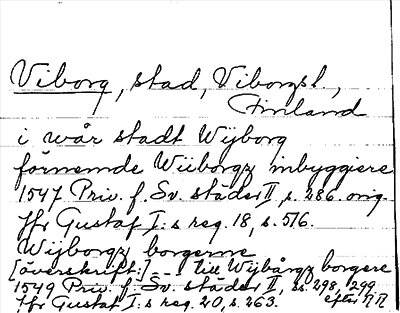 Viborg, stad, Viborgsl.,
Finland
i wår stadt Wijborg
förnemde Wiiborgz inbyggiere
1547 Priv. f. Sv. städer II, s. 286. orig.
Jfr Gustaf I:s reg. 18, s. 516.
Wijborgz borgerne
[överskrift:] - - - till Wijbårgz borgere
1549 Priv. f. Sv. städer II, ss. 298, 299
Jfr Gustaf I:s reg. 20, s. 263. efter